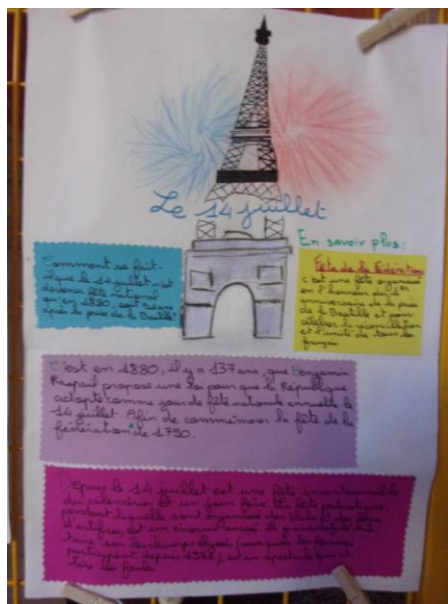 Le 14 juillet
Comment se fait-
il que le 14 juillet, est
devenu fête national
qu'en 1880, soit
après la prise de la Bastille
En savoir plus:
Fête de la Fédération:
c'est une fête organisée
en l'honneur du
anniversaire de la prise
de la Bastille et pour
célébrer la réconciliation
et l'unité de tous les
français
C'est en 1880, il y a 137 ans, que Benjamin
Raspail propose une loi pour que la République
adopte comme jour de fête nationale annuelle le
14 juillet. Afin de commémorer la fête de la
fédération de 1790.
Depuis le 14 juillet est une fête incontournable
du calendrier et un jour férié. La fête
pendant laquelle sont organisés des bals,
d'artifices, est un
sur les champs elysée
participent depuis est un spectacle qui
tire les foules.